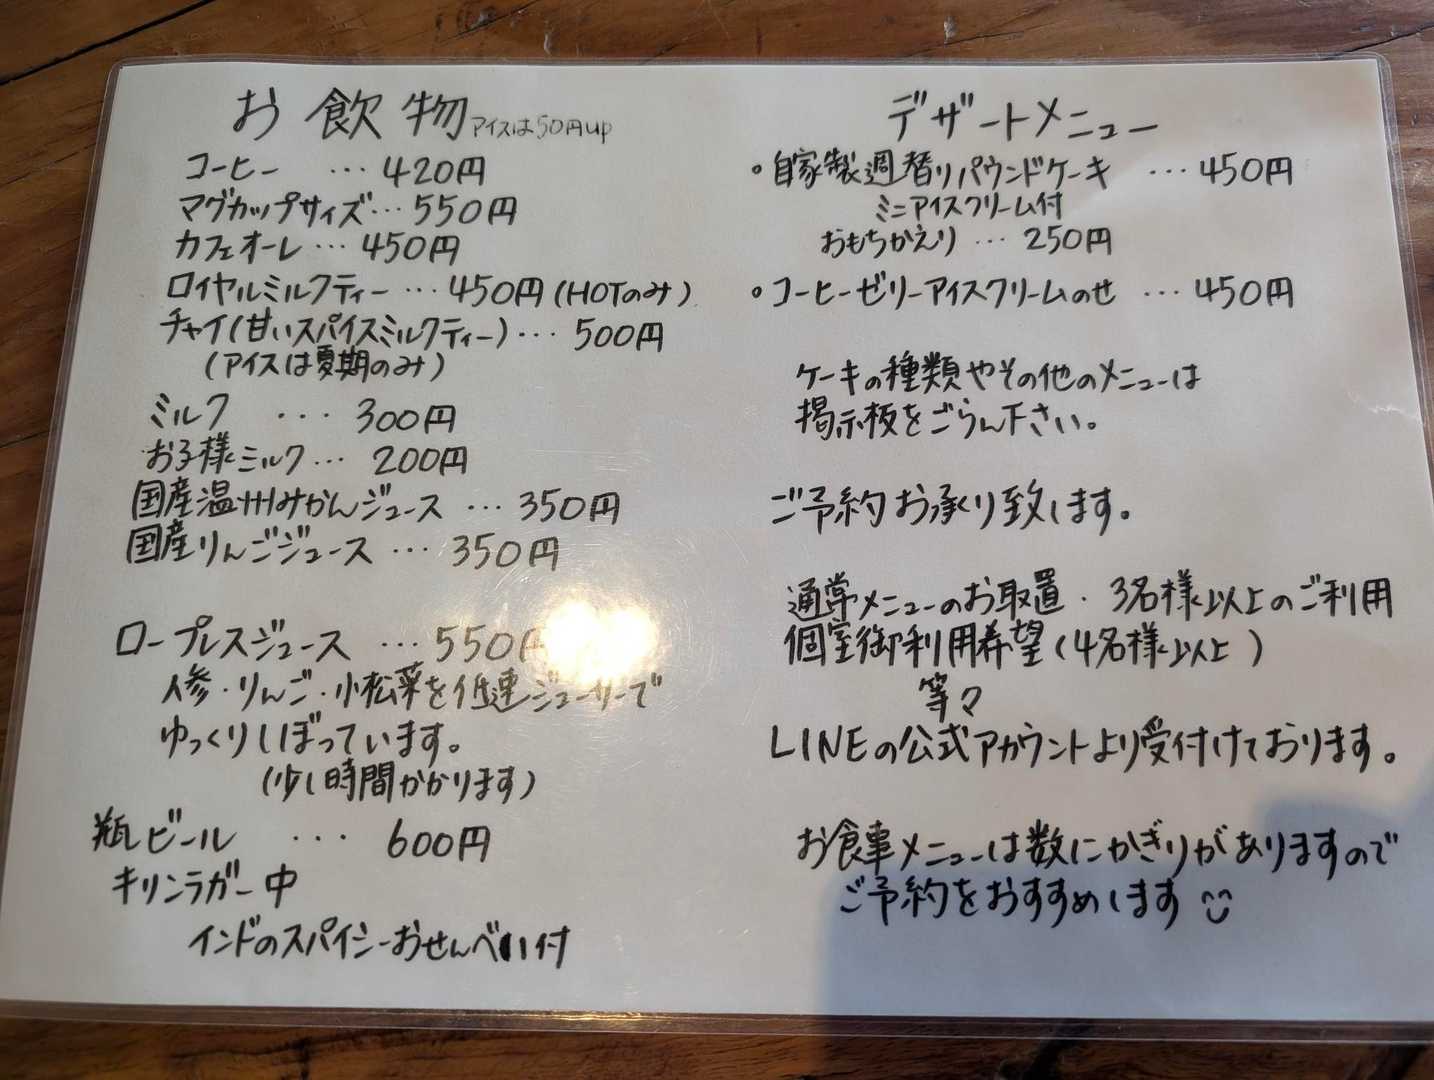 お飲物 アイスは50円up
コーヒー … 420円
マグカップサイズ … 550円
カフェオーレ … 450円
ロイヤルミルクティー … 450円 (HOTのみ)
チャイ(甘いスパイスミルクティー) … 500円
(アイスは夏期のみ)
ミルク … 300円
お子様ミルク … 200円
国産温州みかんジュース … 350円
国産りんごジュース … 350円
ロープレスジュース … 550円
人参・りんご・小松菜を低速ジューサーで
ゆっくりしぼっています。
(少し時間かかります)
瓶ビール … 600円
キリンラガー中
インドのスパイシーおせんべい付
デザートメニュー
・自家製週替りパウンドケーキ … 450円
ミニアイスクリーム付
おもちかえり … 250円
・コーヒーゼリーアイスクリームのせ … 450円
ケーキの種類やその他のメニューは
掲示板をごらん下さい。
ご予約お承り致します。
通常メニューのお取置・3名様以上のご利用
個室御利用希望(4名様以上)
等々
LINEの公式アカウントより受付けております。
お食事メニューは数にかぎりがありますので
ご予約をおすすめします